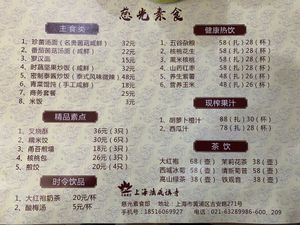 慈光素食
主食类
1、珍菌汤面（名贵菌菇咸鲜） 32元
2、番茄菌菇汤面（咸鲜） 28元
3、罗汉面 15元
4、时蔬坚果炒饭（咸鲜） 32元
5、密制泰酱炒饭（泰式风味微辣） 48元
6、青菜馄饨（手工咸鲜） 22元
7、商务套餐 25元
8、米饭 3元
精品素点
1、叉烧酥 36元（3只）
2、核桃流沙包 10元（1只）
3、葡百煎堆 10元（1只）
4、核桃包 26元（4只）
5、煎饺 20元（4只）
时令饮品
1、大红袍奶茶 20元/杯
2、酸梅汤 5元/杯
健康热饮
1、五谷杂粮 58（扎）28（杯）
2、核桃花生 58（扎）28（杯）
3、薰米核桃 58（扎）28（杯）
4、山药红枣 58（扎）28（杯）
5、养生紫薯 58（扎）28（杯）
6、营养玉米 58（扎）28（杯）
现榨果汁
1、胡萝卜橙汁 88（扎）
2、西瓜汁 58（扎）
茶饮
大红袍 68（壶） 茉莉花茶 38（壶）
西城冰菊 58（壶） 普洱茶 58（壶）
高山绿茶 38（壶） 铁观音 38（壶）
上海法藏讲寺
慈光素食部 地址：上海市黄浦区吉安路271号
手机号：18516069927 电话：021-63289986-600, 209